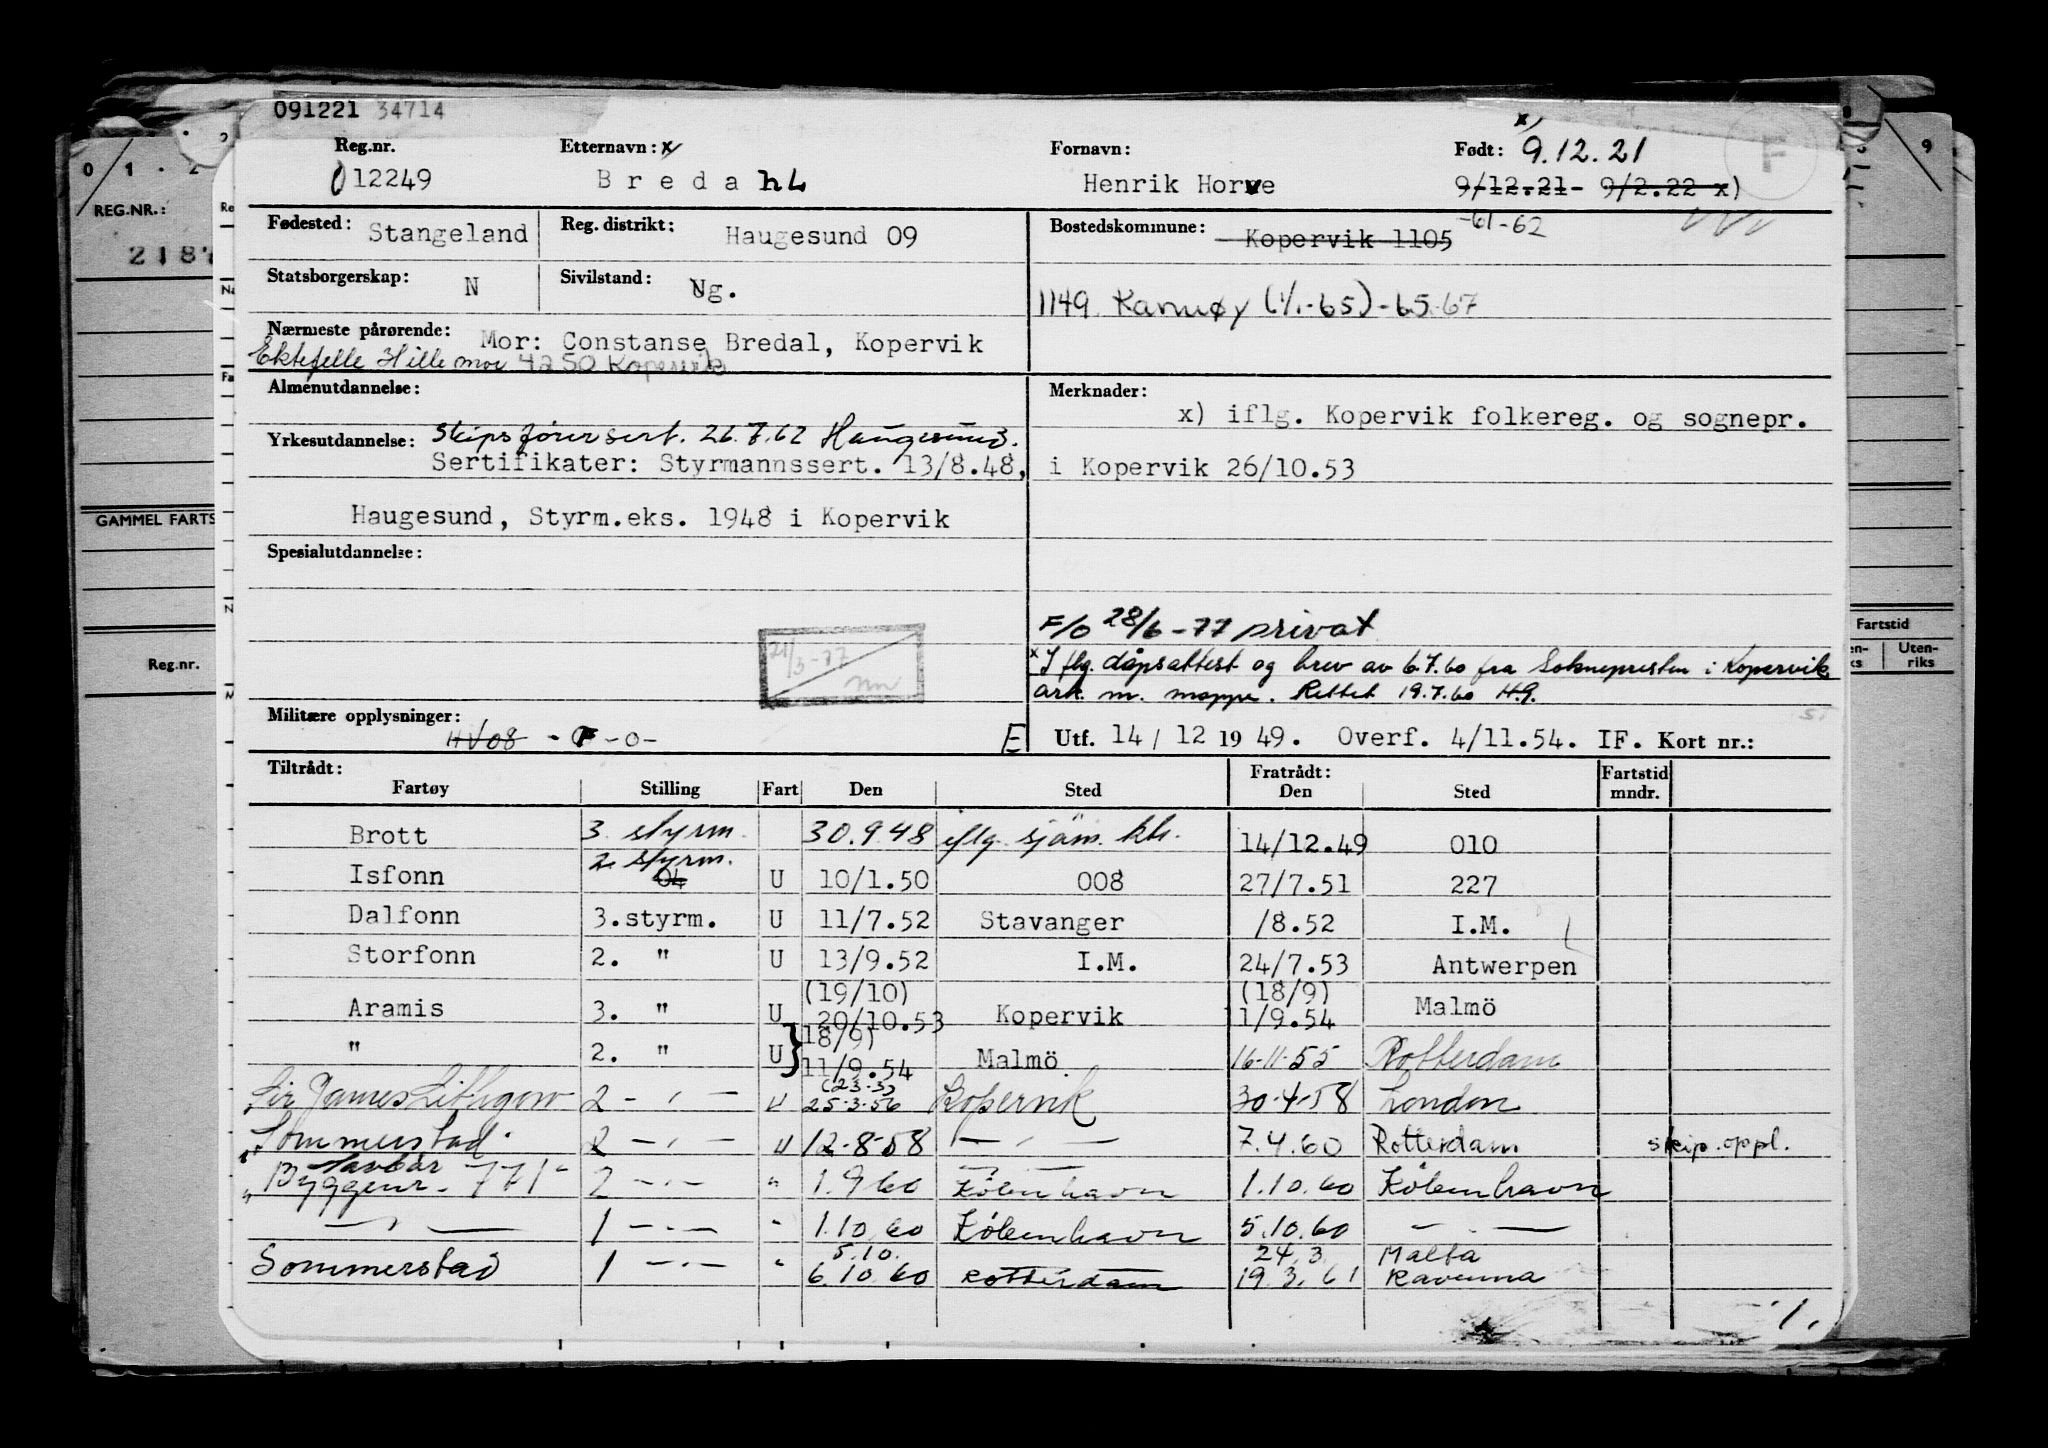 091221 34714
Reg.nr. Etternavn: x/ Fornavn: Født: x) 9.12.21
012249 Bredahl Henrik Horve 9/12.21- 9/2.22 x)
F
Fødested: Stangeland Reg. distrikt: Haugesund 09 Bostedskommune: Kopervik 1105 -61-62
Statsborgerskap: N Sivilstand: Ug.
1149 Karmøy (1/1-65)-65-67
Nærmeste pårørende: Mor: Constanse Bredal, Kopervik
Ektefelle Hille moe 4250 Kopervik
Almenutdannelse: Merknader:
x) iflg. Kopervik folkereg. og sognepr.
i Kopervik 26/10.53
Yrkesutdannelse: Skipsførersert. 26.7.62 Haugesund.
Sertifikater: Styrmannssert. 13/8.48,
Haugesund, Styrm.eks. 1948 i Kopervik
Spesialutdannelse:
21/3-77
F/O 28/6-77 privat
x I flg. dåpsattest og brev av 6.7.60 fra Soknepresten i Kopervik
ark. m. mappe. Rettet 19.7.60 H.G.
Militære opplysninger: HV08 - F -0-
E Utf. 14/12 1949. Overf. 4/11.54. IF. Kort nr.:
Tiltrådt: Fratrådt: Fartstid
Fartøy Stilling Fart Den Sted Den Sted mndr.
Brott 3. styrm. 30.9.48 iflg. sjøm. kk. 14/12.49 010
Isfonn 2. styrm. 04 U 10/1.50 008 27/7.51 227
Dalfonn 3.styrm. U 11/7.52 Stavanger /8.52 I.M.
Storfonn 2. " U 13/9.52 I.M. 24/7.53 Antwerpen
Aramis 3. " U (19/10) 20/10.53 Kopervik (18/9) 11/9.54 Malmö
" 2. " U 18/9) 11/9.54 Malmö 16-11-55 Rotterdam
Sir James Lithgow 2 -"- U (23.3) 25.3.56 Kopervik 30-4-58 London
Sommerstad 2 -"- U 12-8-58 -"- 7.4.60 Rotterdam skip. oppl.
Byggenr. 771 2 -"- " 1.9.60 København 1.10.60 København
-"- 1 -"- " 1.10.60 København 5.10.60 -"-
Sommerstad 1 -"- " 5.10. 6.10.60 Rotterdam 24.3. 19.3.61 Malta Ravenna
1.
REG.NR.:
2187
GAMMEL FARTS
Reg.nr.
Fartstid
Uten-
riks